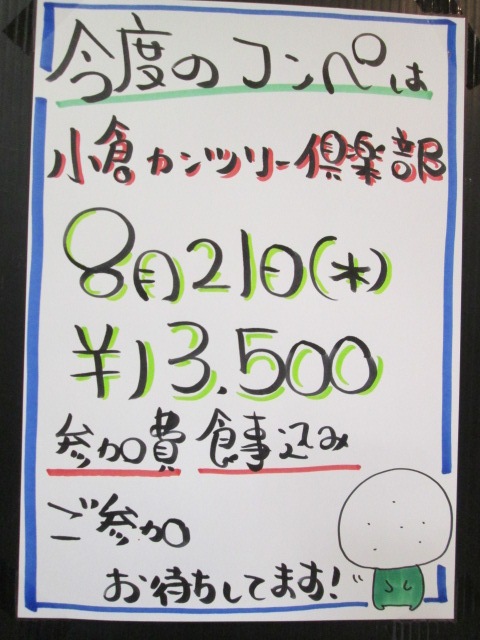 今度のコンペは
小倉カンツリー倶楽部
8月21日(木)
¥13.500
参加費 食事込み
ご参加
お待ちしてます!